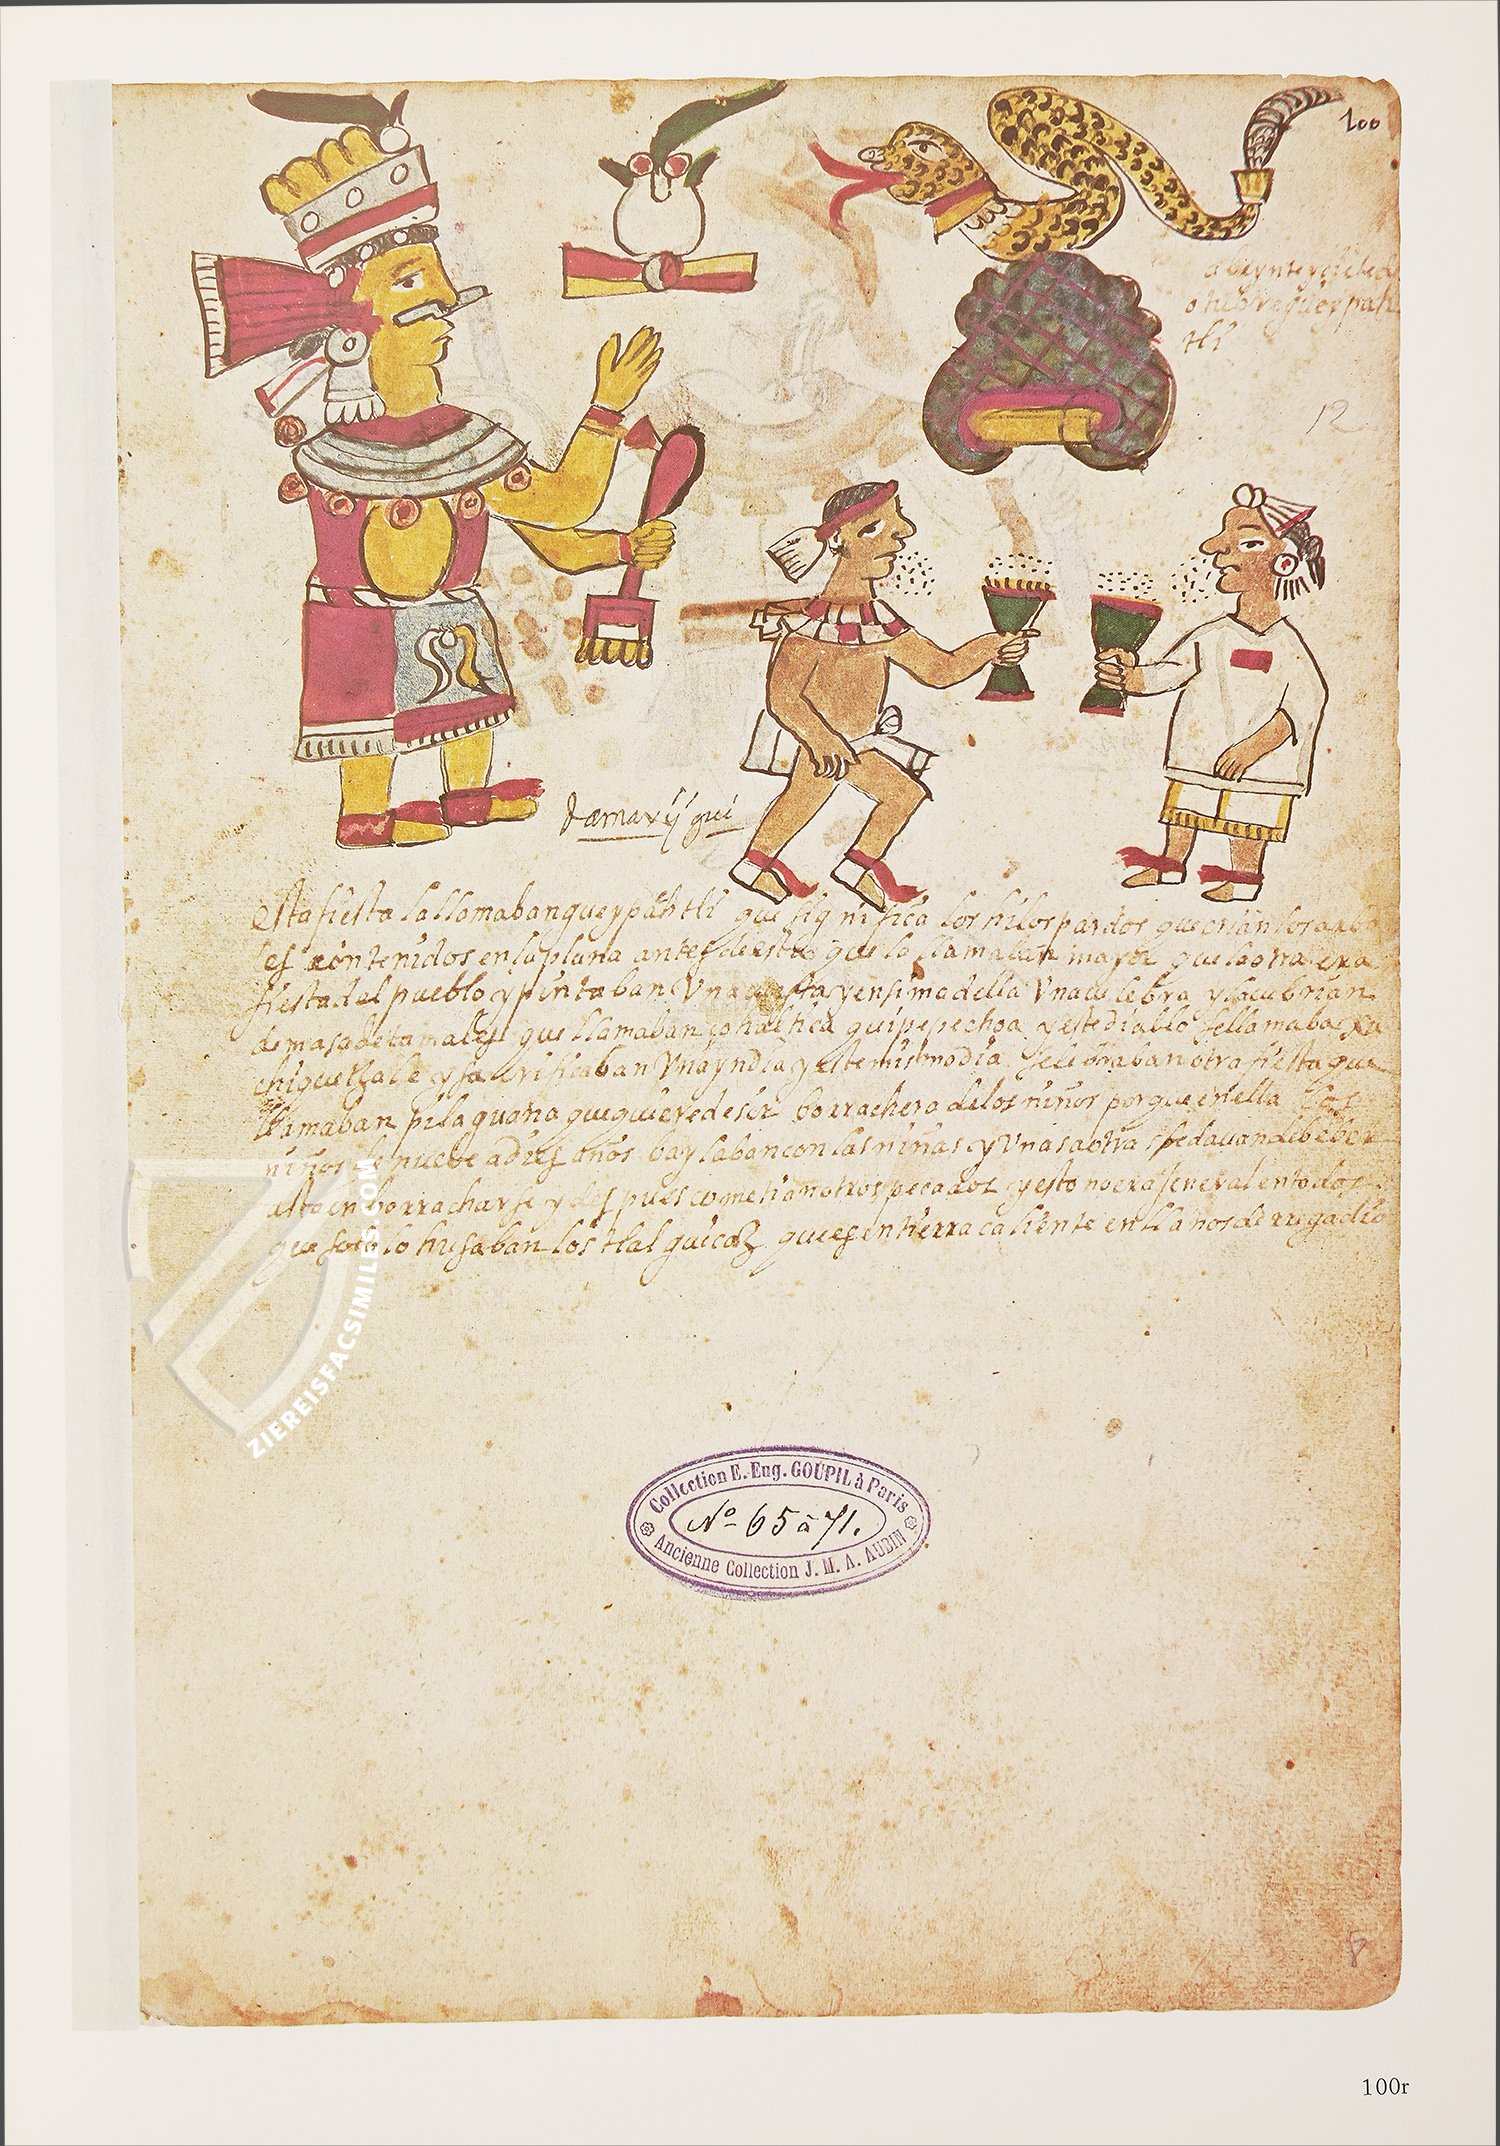 100
a beynte y siete de
otubre gueypah
tli
12
damaxyj gui
Esta fiesta la llamaban gueypahtli que significa los hilos pardos que crian los arbo
les contenidos en la plana antes desta que la llamaban mayor que la otra era
fiesta del pueblo y pintaban Una y ensima della Una culebra y la cubrian
de masa de tamales que llamaban y este diablo se llamaba xu
chiquetzale y sacrificaban Una yndia y este mismo dia selebraban otra fiesta que
llamaban pilaguana que quiere desir borrachera de los niños porque en ella los
niños de nueve a dies años baylaban con las niñas y Unas a otras se davan de beber
asta enborracharse y despues cometian otros pecados y esto no era jeneral en todos
que solo lo husaban los tlalguicas que es en tierra caliente en llanos de rregadio
ZIEREISFACSIMILES.COM
Collection E. Eug. GOUPIL à Paris
Nº 65 à 71.
Ancienne Collection J. M. A. AUBIN
8
100r